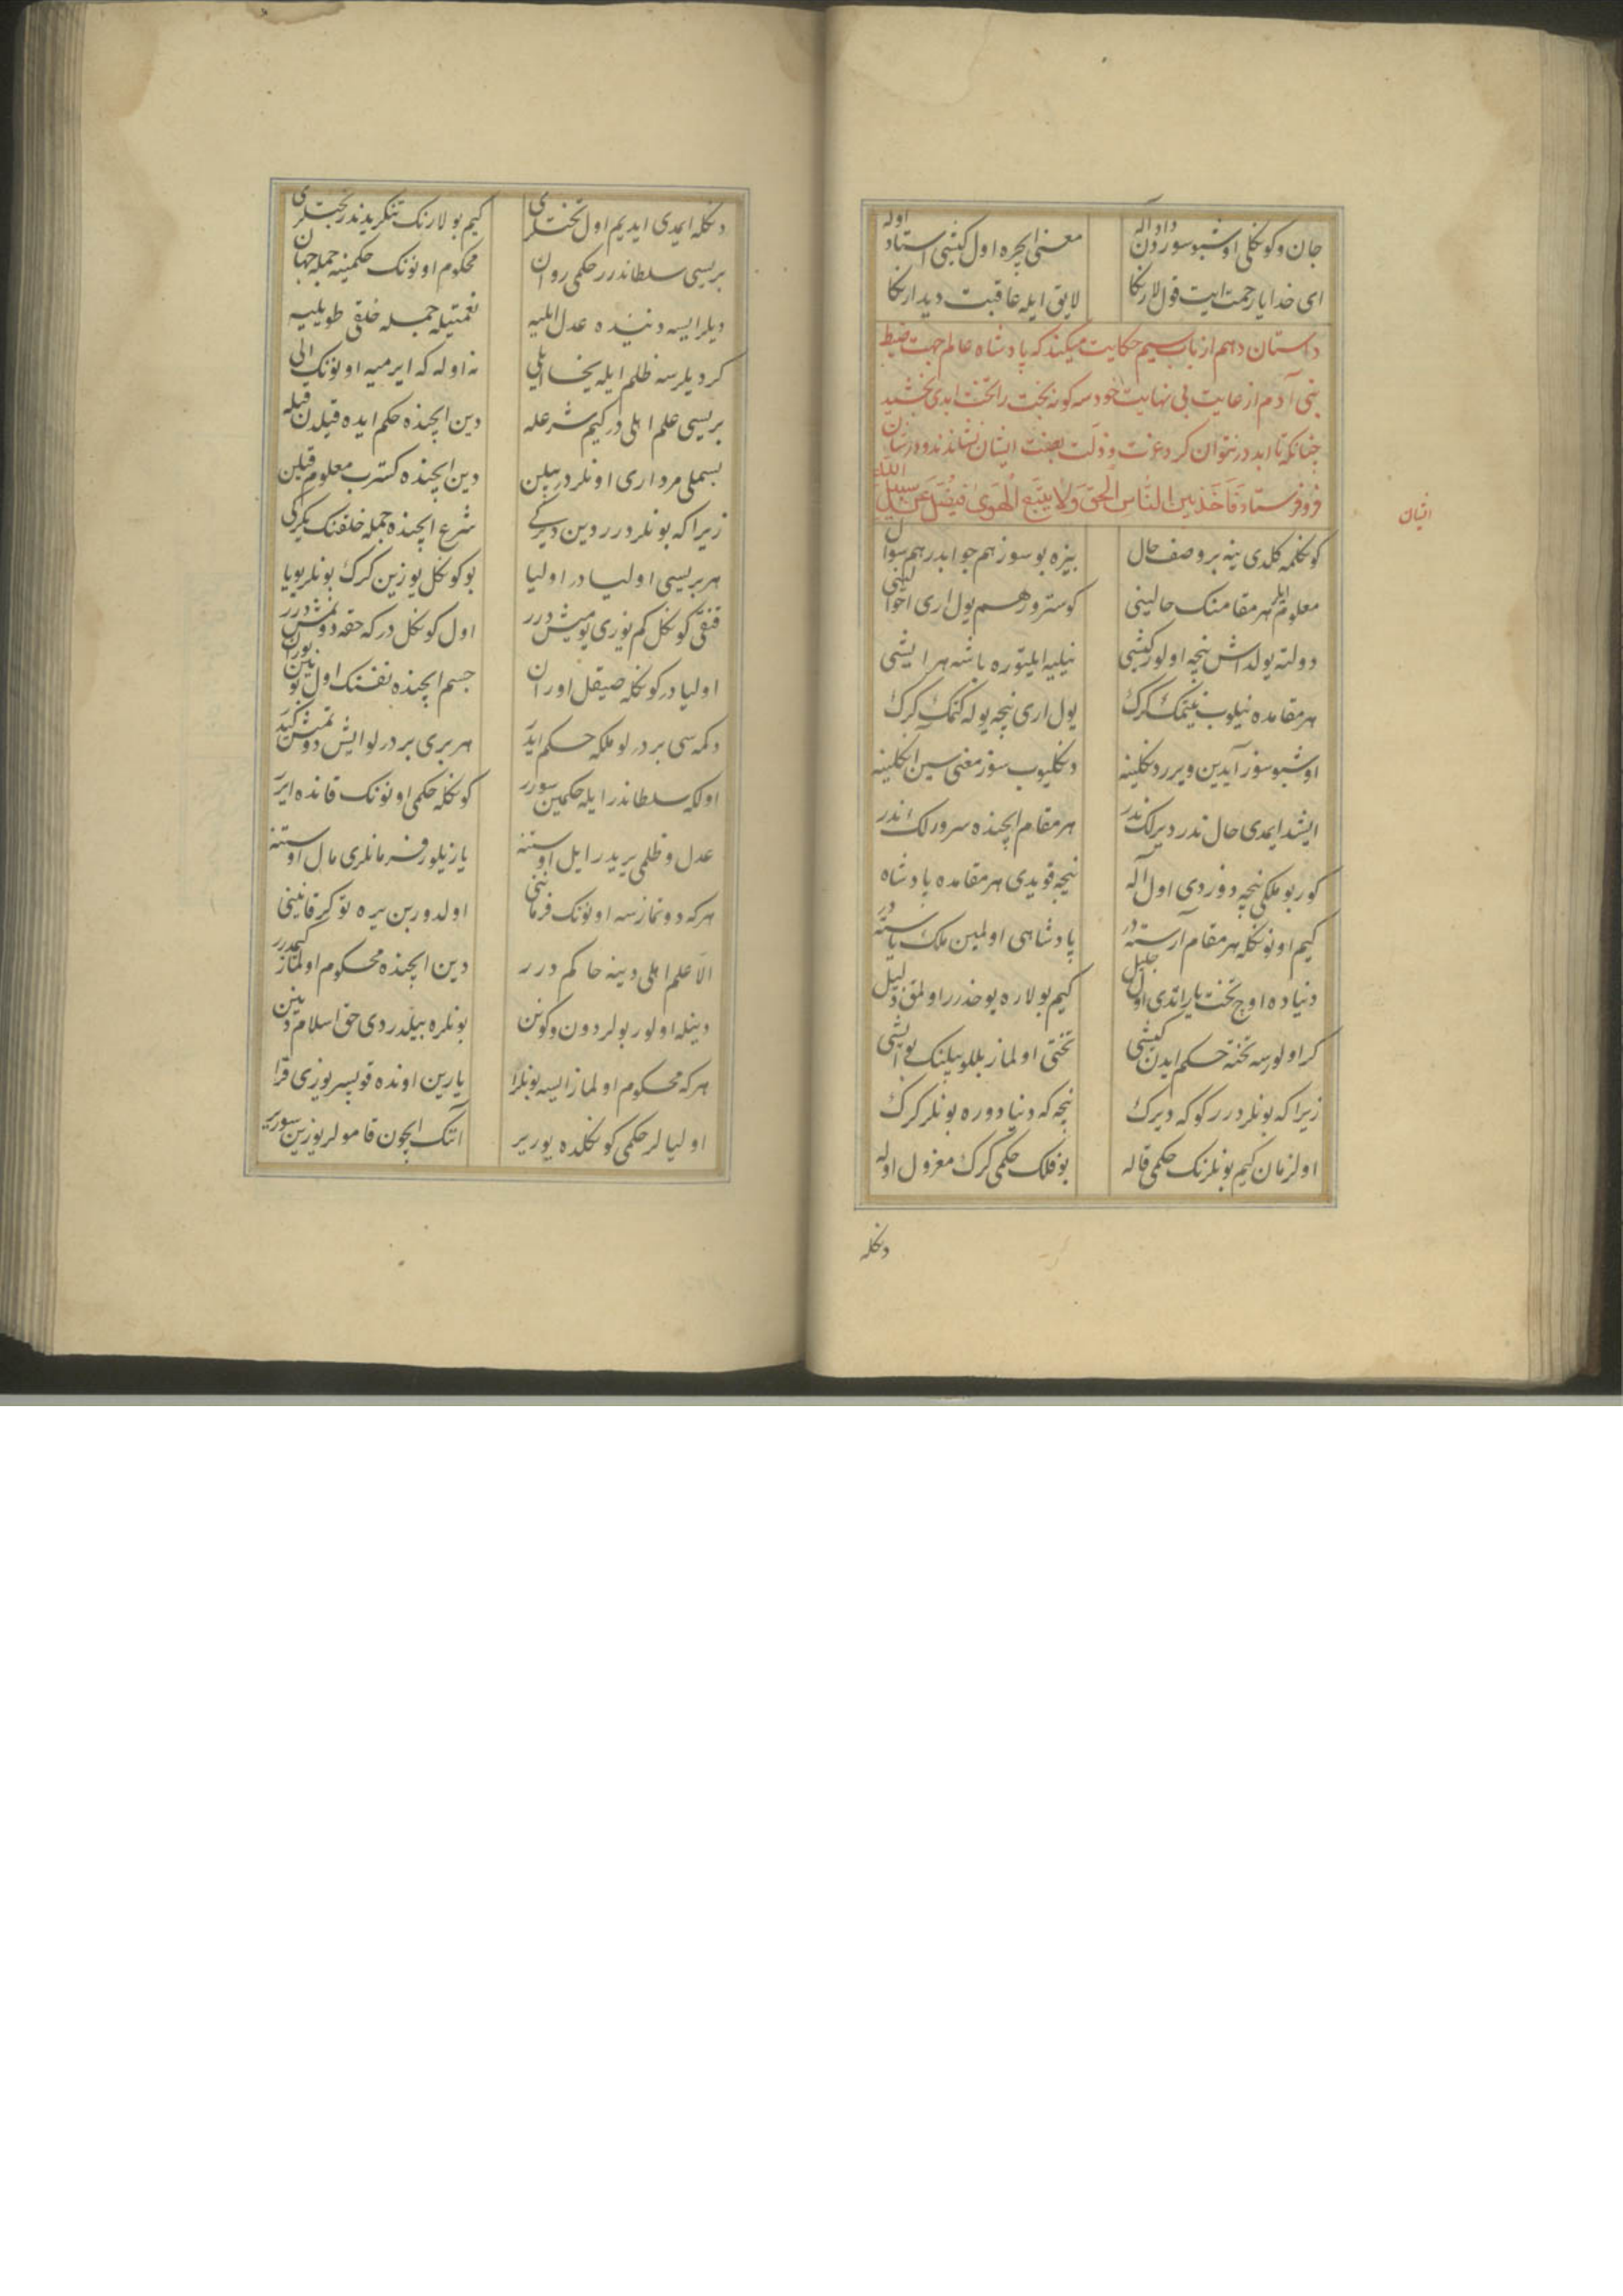 جان و کوکلی اوشبو سوزدن داد آله معنی ایچره اول کیشی استاد اوله
ای خدایا رحمت ایت قول لارکا لایق ایله عاقبت دیدارکا
داستان دهم از باب سیم حکایت میکند که پادشاه عالم جهت ضبط
بنی آدم از عنایت بی نهایت خود سه کونه تخت را تخت ابدی بخشید
چنانکه تا ابد در نتوان کرد عزت و ذلت بصفت ایشان نشاندند و در شان
فرو فرستاد فَاحْكُم بین الناس الحق ولا یتبع الهوی فیضل عن سبیل الله
ایشان
کوکلمه کلدی ینه بر وصف حال بیزه بو سوز هم جوابدر هم سوال
معلوم ایلر هر مقامنک حالینی کوسترور هم یول اری احوالینی
دولته یولداش نیجه اولور کیشی نیلیه ایلتوره باشه هر ایشی
هر مقامده نیلوب نیتمک کرک یول اری نیجه یوله کتمک کرک
اوشبو سوز آیدین ویرر دکلینه دکلیوب سوز معنی سین اکلینه
ایشد ایمدی حال ندر دیرلک ندر هر مقام ایچنده سرورلک ندر
کور بو ملکی نیجه دوزدی اول اله نیجه قویدی هر مقامده پادشاه
کیم اونوکله هر مقام آرسته در پادشاهی اولمین ملک یاسته در
دنیاده اوچ تخت یاراتدی اول جلیل کیم بولاره یوخدرر اولمق ذلیل
کر اولورسه تخته حکم ایدن کیشی تختی اولماز بللو بیلنک بو ایشی
زیرا که بونلردرر کوکه دیرک نیجه که دنیا دوره بونلر کرک
اول زمان کیم بونلرنک حکمی قاله بو فلک حکمی کرک معزول اوله
دکله
دکله ایمدی ایدیم اول تختلری کیم بولارنک تنکریدندر بختلری
بریسی سلطاندرر حکمی روان محکوم اونونک حکمینه جمله جهان
دیلر ایسه دنیده عدل ایلیه نعمتیله جمله خلقی طویلیه
کر دیلرسه ظلم ایله یخا ایلی نه اوله که ایرمیه اونونک الی
بریسی علم اهلی در کیم شرعله دین ایچنده حکم ایده قیلدن قیله
بسملی مرداری اونلردر بیلن دین ایچنده کسترب معلوم قیلن
زیرا که بونلردرر دین دیرکی شرع ایچنده جمله خلقنک یکرکی
هر بریسی اولیادر اولیا بو کوکل یوزین کرک بونلر یویا
قنقی کوکل کم یوری یومیش درر اول کوکل در که حقه دوتمش درر
اولیادر کوکله صیقل اوران جسم ایچنده نفسنک اول بوینین بوران
دکمه سی بر درلو ملکه حکم ایدر هر بری بر درلو ایش دوتمش کیدر
اولکه سلطاندر ایله حکمین سورر کوکله حکمی اونونک قانده ایرر
عدل و ظلمی یریدر ایل اوستنه یازیلور فرمانلری مال اوستنه
هر که دوتمازسه اونونک فرمانینی اولدورین یره توکر قانینی
الا علم اهلی دینه حاکم درر دین ایچنده محکوم اولماز کیمدرر
دینله اولور بولر دون و کونن بونلره بیلدردی حق اسلام دینین
هر که محکوم اولماز ایسه بونلرا یارین اونده قوپسر یوزی قرا
اولیالر حکمی کوکلده یوریر آنک ایچون قامولر یوزین سوریر